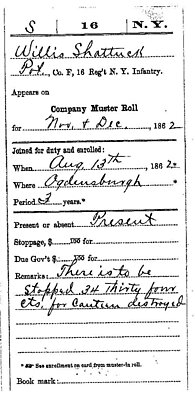 S | 16 | N.Y.
Willis Shattuck
Pvt., Co. F, 16 Reg't N. Y. Infantry.
Appears on
Company Muster Roll
for Nov. & Dec, 1862
Joined for duty and enrolled:
When Aug. 13th, 1862*
Where Ogdensburgh*
Period 3 years.*
Present or absent Present
Stoppage, $ 100 for
Due Gov't $ 100 for
Remarks: There is to be
stopped 34 Thirty four
cts. for Canteen destroyed
* See enrollment on card from muster-in roll.
Book mark: